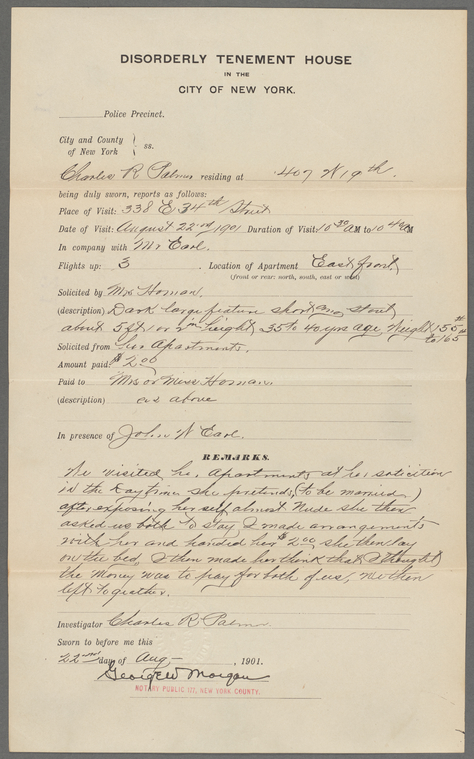 DISORDERLY TENEMENT HOUSE
IN THE
CITY OF NEW YORK.
Police Precinct.
City and County
of New York } ss.
Charles R Palmer residing at 407 W 19th.
being duly sworn, reports as follows:
Place of Visit: 338 E 34th Street
Date of Visit: August 22nd 1901 Duration of Visit: 10 30 AM to 10 40 AM
In company with Mr Earl.
Flights up: 3 . Location of Apartment East front
(front or rear: north, south, east or west)
Solicited by Mrs Homan.
(description) Dark large short and stout
about 5 ft 1 or 2 in height, 35 to 40 yrs age, Weight 155 to 165
Solicited from her Apartments.
Amount paid: $2.00
Paid to Mrs or Miss Homan.
(description) as above
In presence of John W Earl.
REMARKS.
We visited her Apartments at her solicition
in the daytime she pretends (to be married)
after exposing herself almost Nude she then
asked us both to stay, I made arrangements
with her and handed her $2.00 she then lay
on the bed, I then made her think that I thought
the money was to pay for both of us, we then
left together.
Investigator Charles R Palmer
Sworn to before me this
22nd day of Aug , 1901.
George W Morgan
NOTARY PUBLIC 177, NEW YORK COUNTY.